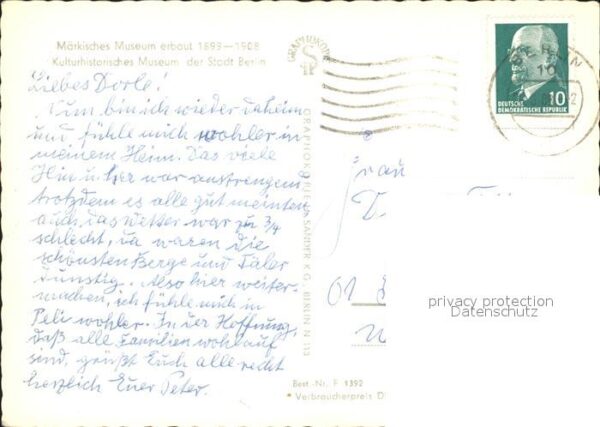 Märkisches Museum erbaut 1899—1908
Kulturhistorisches Museum der Stadt Berlin
Liebes Dorle!
Nun bin ich wieder daheim
und fühle mich wohler in
meinem Heim. Das viele
Hin u. her war anstrengend
trotzdem es alle gut meinten
auch das Wetter war zu 3/4
schlecht, da waren die
schönsten Berge und Täler
dunstig. Also hier weiter-
machen, ich fühle mich in
wohler. In der Hoffnung,
daß alle Familien wohlauf
sind, grüßt Euch alle recht
herzlich Euer Peter.
GRAPHOKOPIE
H. SANDER K.G. BERLIN N 113
10
DEUTSCHE
DEMOKRATISCHE REPUBLIK
Frau
privacy protection
Datenschutz
Best.-Nr. F 1392
Verbraucherpreis D